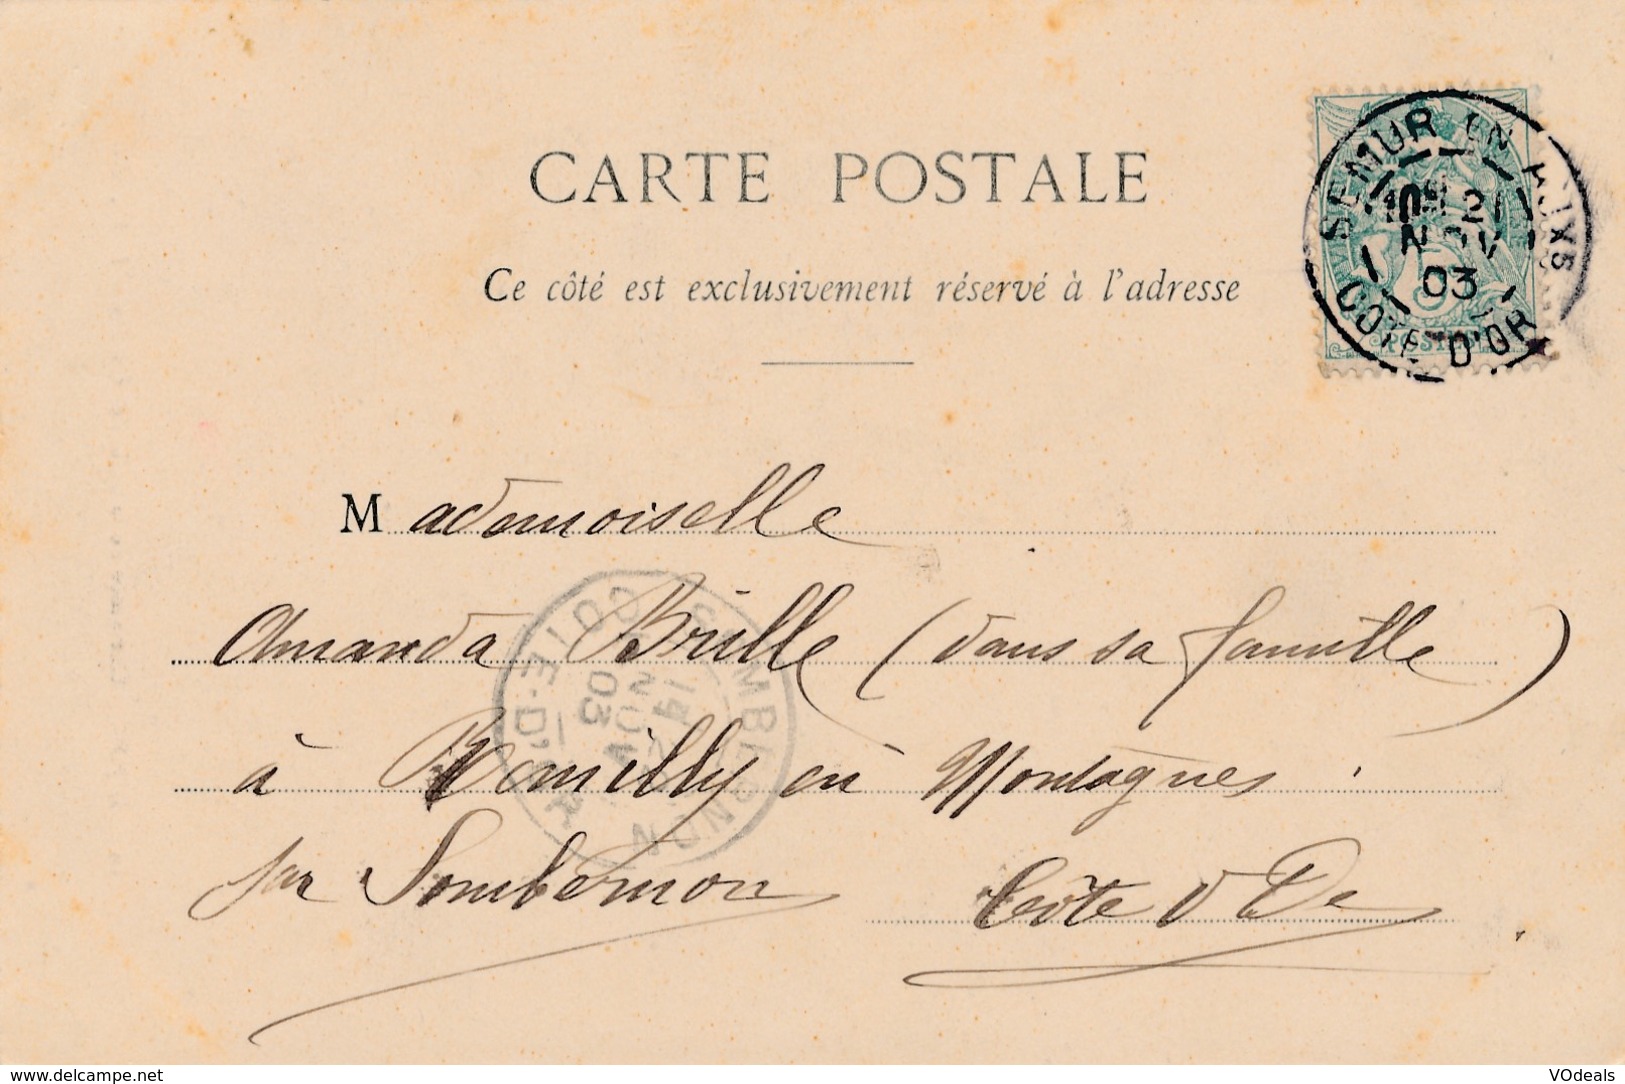 CARTE POSTALE
Ce côté est exclusivement réservé à l'adresse
SEMUR EN AUXOIS
21
NOV
03
COTE D'OR
POSTES
Mademoiselle
Amanda Brulle (dans sa famille)
à Remilly en Montagnes
par Sombernon Côte d'Or
SOMBERNON
19
NOV
03
COTE-D'OR
www.delcampe.net
VOdeals